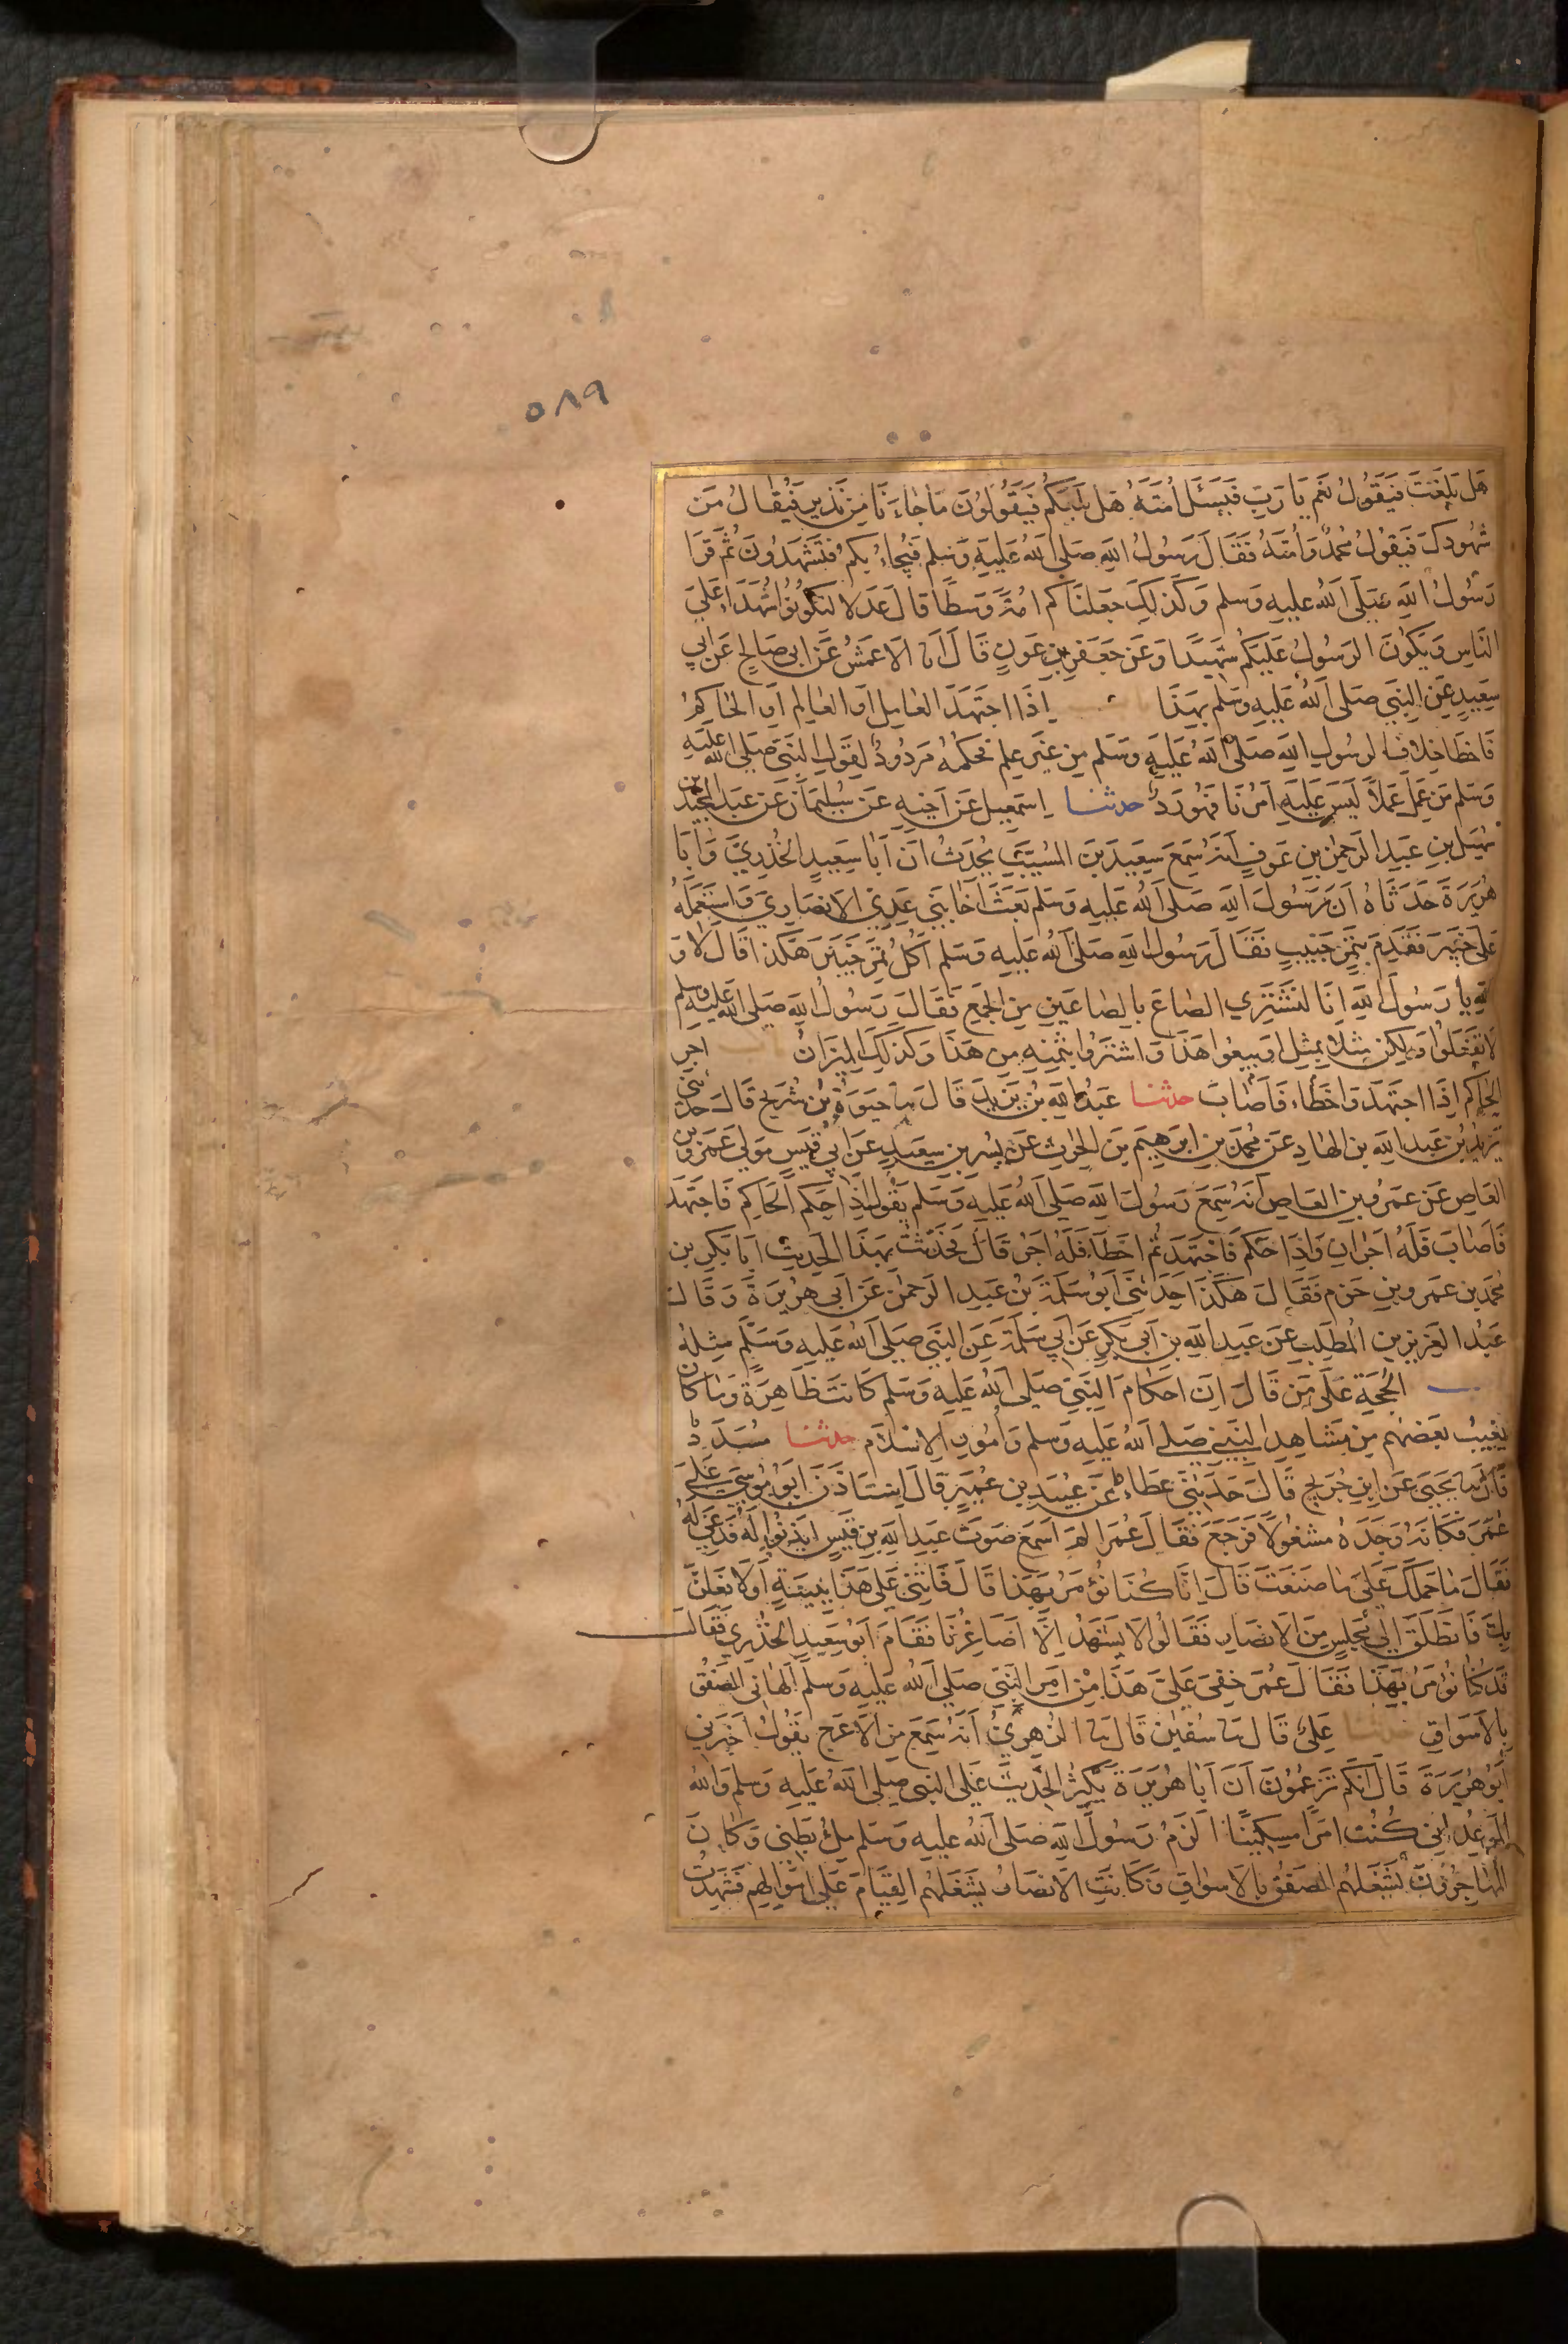 ٥٨٩
هَل بَلَّغتَ فَيَقُولُ نَعَم يَا رَبِّ فَيُسئَل أُمَّتَهُ هَل بَلَّغَكُم فَيَقُولُونَ مَا جَاءَنَا مِن نَذِيرٍ فَيُقَالُ مَن
شُهُودكَ فَيَقُولُ مُحَمّدٌ وَأُمَّتُهُ فَقَالَ رَسُولُ اللّهِ صَلى اللهُ عَلَيهِ وَسَلم فَيُجَاءُ بِكُم فَتَشهَدُونَ ثُمَّ قَرَا
رَسُولُ اللّهِ صَلَى اللهُ عليهِ وسلم وَكَذَلِكَ جَعَلنَاكُم أُمَّةً وَسَطًا قَالَ عَدلا لِتَكُونُوا شُهَدَاءَ عَلَى
النَّاسِ وَيَكُونَ الرَسُولُ عَلَيكُم شَهِيدًا وَعَن جَعفَرِ بنِ عَونٍ قَالَ انا الاعمَشُ عَن ابى صَالحٍ عَن ابِي
سَعِيدٍ عَن النبِيِ صَلى اللهُ عَلَيهِ وسَلم بِهَذَا اِذَا اجتَهَدَ العَامِل اَو العَالِم اَو الحَاكِمُ
فَاخطَا خِلَافَ لرسُولِ اللّهِ صَلى اللهُ عَلَيهِ وسَلم مِن غَيرِ عِلمٍ فَحُكمُهُ مَردُودٌ لِقَولِ النبِيِّ صَلى الله عَليهِ
وَسَلم مَن عَمِلَ عَمَلاً لَيسَ عَلَيهِ اَمرُنَا فَهُو رَدٌّ حدثنا اِسمعِيل عَن اَخِيهِ عَن سُلَيمَان عَن عَبدِ المَجِيدِ بن
سُهَيلِ بنِ عَبدِ الرَحمنِ بنِ عَوفٍ اَنَّهُ سَمِعَ سَعِيدَ بنَ المسَيَّبِ يُحَدِثُ اَنَّ اَبَا سَعِيدٍ الخُدرِيَّ وَاَبَا
هُرَيرَةَ حَدَّثَاهُ اَنَّ رَسُولَ اللّهِ صَلى اللهُ عَلَيهِ وَسَلم بَعَثَ اَخَا بَنِي عَدِيٍ الانصَارِيَّ وَاستَعمَلَهُ
عَلَى خَيبَرَ فَقَدِمَ بِتَمرٍ جَنِيبٍ فَقَالَ رَسُولُ اللّهِ صَلى اللهُ عَلَيهِ وَسَلم اَكُلُّ تَمرِ خَيبَرَ هَكَذَا قَالَ لَا وَ
اللّهِ يا رَسُولَ اللّهِ اِنَّا لَنَشتَرِي الصَاعَ بِالصَاعَينِ مِنَ الجَمعِ فَقَالَ رَسُولُ اللّهِ صَلى الله عَليهِ وسلم
لَا تَفعَلُوا وَلَكِن مِثلاً بِمِثلٍ اَو بِيعُوا هَذَا وَاشتَرُوا بِثَمَنِهِ مِن هَذَا وَكَذَلِكَ المِيزَانُ اجر
الحَاكِم اِذَا اجتَهَدَ وَاخطَاء فَاصَابَ حدثنا عَبدُ اللّهِ بنُ يَزِيدَ قَالَ ثنا حَيوَةُ بنُ شُرَيحٍ قَالَ حدثني
يَزِيدُ بنُ عَبدِ اللّهِ بن الهَادِ عَن مُحَمَّد بنِ ابرَهِيمَ بنِ الحرِثِ عَن بُسرِ بنِ سَعِيدٍ عَن اَبِي قَيسٍ مَولَى عَمرِو بن
العَاصِ عَن عَمرِو بنِ العَاصِ اَنَّهُ سَمِعَ رَسُولَ اللّهِ صَلى اللهُ عَلَيهِ وَسَلم يَقُولُ اِذَا حَكَمَ الحَاكِم فَاجتَهَدَ
فَاصَابَ فَلَهُ اجرَانِ وَاِذَا حَكَمَ فَاجتَهَدَ ثُمَّ اخطَاَ فَلَهُ اجرٌ قَالَ فَحَدَّثتُ بِهَذَا الحَدِيثِ ابَا بَكرِ بن
مُحَمدِ بنِ عَمرِو بنِ حَزمٍ فَقَالَ هَكَذَا حَدَثَنِي اَبُو سَلَمَةَ بنُ عَبدِ الرَحمنِ عَن اَبِى هُرَيرَةَ وَقَالَ
عَبدُ العَزِيزِ بنِ المُطَّلِبِ عَن عَبدِ اللّهِ بنِ اَبى بَكرٍ عَن اَبِي سَلَمَةَ عَن النبِيِ صَلى اللهُ عَلَيهِ وَسَلم مِثلَهُ
الحُجَّةِ عَلَى مَن قَالَ اِنَّ اَحكَامَ النبِيِّ صَلى اللهُ عَلَيهِ وَسَلم كَانَت ظَاهِرَةً وَمَا كَانَ
يَغِيبُ بَعضُهُم مِن مَشَاهِدِ النبِي صَلى اللهُ عَلَيهِ وسلم وَامُورِ الاسلَامِ حدثنا مُسَدَّدٌ
قَالَ ثنا يَحيَى عَن ابنِ جُرَيجٍ قَالَ حَدَثَنِي عَطَاءٌ عَن عُبَيدِ بنِ عُمَيرٍ قَالَ استَاذَنَ اَبُو مُوسَى عَلَى
عُمَرَ فَكَانَهُ وَجَدَهُ مَشغُولاً فَرَجَعَ فَقَالَ عُمَرُ الَم اَسمَع صَوتَ عَبدِ اللّهِ بنِ قَيسٍ ائذَنُوا لَهُ فَدُعِيَ لَهُ
فَقَالَ مَا حَمَلَكَ عَلَى مَا صَنَعتَ قَالَ اِنَّا كُنَّا نُؤمَرُ بِهَذَا قَالَ فَائتِنِي عَلَى هَذَا بِبَيِّنَةٍ اَو لَافعَلَنَّ
بِكَ فَانطَلَقَ اِلَى مَجلِسٍ مِنَ الانصَارِ فَقَالُوا لَا يَشهَدُ اِلَّا اَصَاغِرُنَا فَقَامَ اَبُو سَعِيدٍ الخُدرِي فَقَالَ
قَد كُنَّا نُؤمَرُ بِهَذَا فَقَالَ عُمَرُ خَفِىَ عَلَىَّ هَذَا مِن اَمرِ النبِيِّ صَلى اللهُ عَلَيهِ وَسَلم اَلهَانِي الصَفقُ
بِالاَسوَاقِ حدثنا عَلِىٌ قَالَ ثنا سُفيٰن قَالَ ثنا الزُهرِيُّ اَنَّهُ سَمِعَ مِنَ الاَعرَجِ يَقُولُ اَخبَرَنِي
اَبُو هُرَيرَةَ قَالَ اِنَّكُم تَزعُمُونَ اَنَّ اَبَا هُرَيرَةَ يُكثِرُ الحَدِيثَ عَلَى النبى صَلى اللهُ عَلَيهِ وَسَلم وَاللّهُ
المَوعِدُ اِنِّي كُنتُ امرَأً مِسكِينًا الزَمُ رَسُولَ اللّهِ صَلى اللهُ عليهِ وَسَلم عَلى مِلءِ بَطنِي وَكَانَ
المُهَاجِرُونَ يَشغَلُهُم الصَفقُ بِالاَسوَاقِ وَكَانَتِ الانصَارُ يَشغَلُهُم القِيَامُ عَلَى اَموَالِهِم فَشَهِدتُ